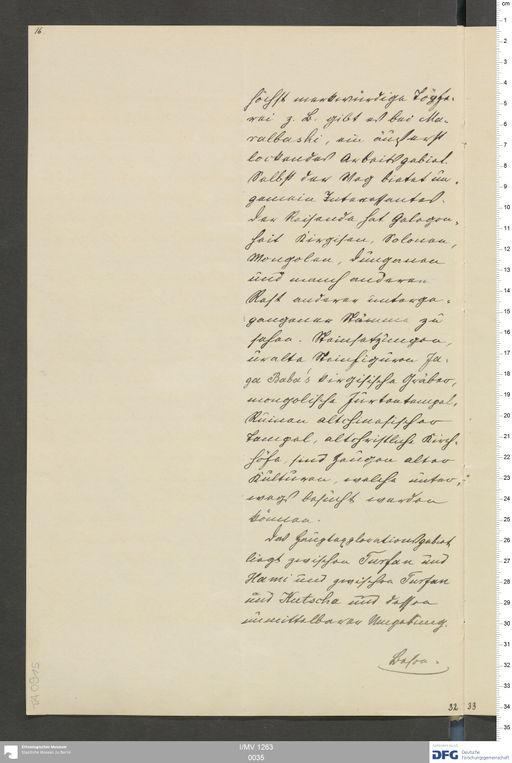 16.
höchst merkwürdige Töpfe-
rei z. B. gibt es bei Ma-
ralbaschi, ein äußerst
lockendes Arbeitsgebiet.
Selbst der Weg bietet un-
gemein Interessantes.
Der Reisende hat Gelegen-
heit Kirgisen, Solonen,
Mongolen, Dunganen
und manch anderen
Rest anderer unterge-
gangener Stämme zu
sehen. Steinsetzungen,
uralte Steinfiguren Ja-
ga Baba's kirgisische Gräber,
mongolische Jurtentempel,
Ruinen altchinesischer
Tempel, altchristliche Kirch-
höfe, sind Zeugen alter
Kulturen, welche unter-
wegs besucht werden
können.
Das Hauptexplorationsgebiet
liegt zwischen Turfan und
Hami und zwischen Turfan
und Kutscha und dessen
unmittelbarer Umgebung.
32 33
TA 0915
I/MV 1263
0035
Ethnologisches Museum
Staatliche Museen zu Berlin
DFG Deutsche
Forschungsgemeinschaft
cm
1
2
3
4
5
6
7
8
9
10
11
12
13
14
15
16
17
18
19
20
21
22
23
24
25
26
27
28
29
30
31
32
33
34
35